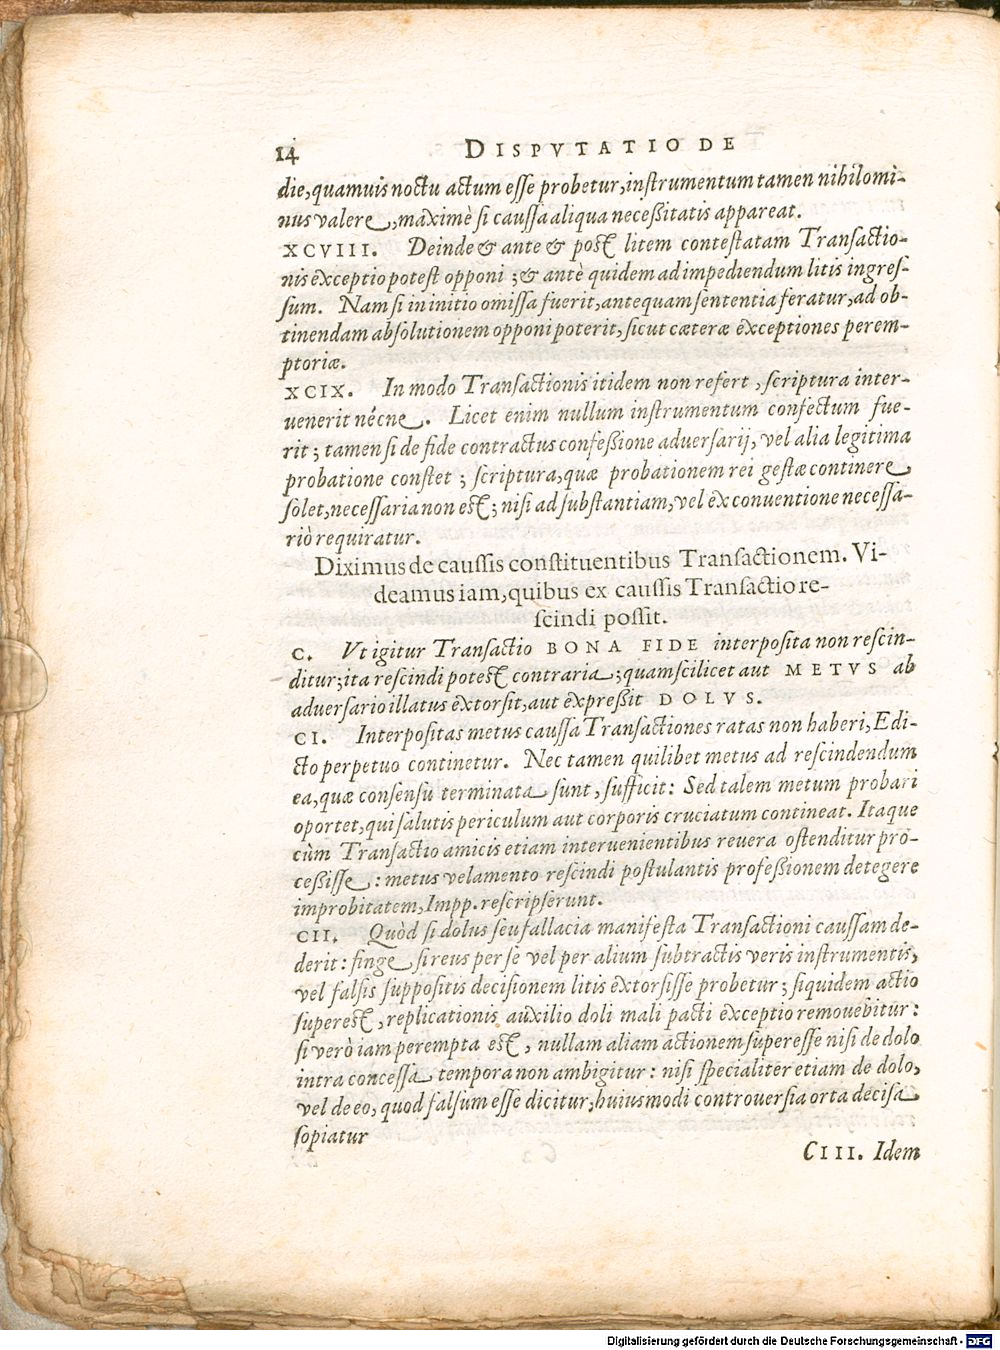 14 DISPVTATIO DE
die, quamuis noctu actum esse probetur, instrumentum tamen nihilomi-
nus valere, maximè si caussa aliqua necessitatis appareat.
XCVIII. Deinde & ante & post litem contestatam Transactio-
nis exceptio potest opponi; & antè quidem ad impediendum litis ingres-
sum. Nam si in initio omissa fuerit, antequam sententia feratur, ad ob-
tinendam absolutionem opponi poterit, sicut cæteræ exceptiones perem-
ptoriæ.
XCIX. In modo Transactionis itidem non refert, scriptura inter-
uenerit nécne. Licet enim nullum instrumentum confectum fue-
rit; tamen si de fide contractus confessione aduersarij, vel alia legitima
probatione constet; scriptura, quæ probationem rei gestæ continere
solet, necessaria non est; nisi ad substantiam, vel ex conuentione necessa-
riò requiratur.
Diximus de caussis constituentibus Transactionem. Vi-
deamus iam, quibus ex caussis Transactio re-
scindi possit.
C. Vt igitur Transactio BONA FIDE interposita non rescin-
ditur; ita rescindi potest contraria; quam scilicet aut METVS ab
aduersario illatus extorsit, aut expressit DOLVS.
CI. Interpositas metus caussa Transactiones ratas non haberi, Edi-
cto perpetuo continetur. Nec tamen quilibet metus ad rescindendum
ea, quæ consensu terminata sunt, sufficit: Sed talem metum probari
oportet, qui salutis periculum aut corporis cruciatum contineat. Itaque
cùm Transactio amicis etiam interuenientibus reuera ostenditur pro-
cessisse: metus velamento rescindi postulantis professionem detegere
improbitatem, Impp. rescripserunt.
CII. Quòd si dolus seu fallacia manifesta Transactioni caussam de-
derit: finge si reus per se vel per alium subtractis veris instrumentis,
vel falsis suppositis decisionem litis extorsisse probetur; siquidem actio
superest, replicationis auxilio doli mali pacti exceptio remouebitur:
si verò iam perempta est, nullam aliam actionem superesse nisi de dolo
intra concessa tempora non ambigitur: nisi specialiter etiam de dolo,
vel de eo, quod falsum esse dicitur, huiusmodi controuersia orta decisa
sopiatur
CIII. Idem
Digitalisierung gefördert durch die Deutsche Forschungsgemeinschaft - DFG